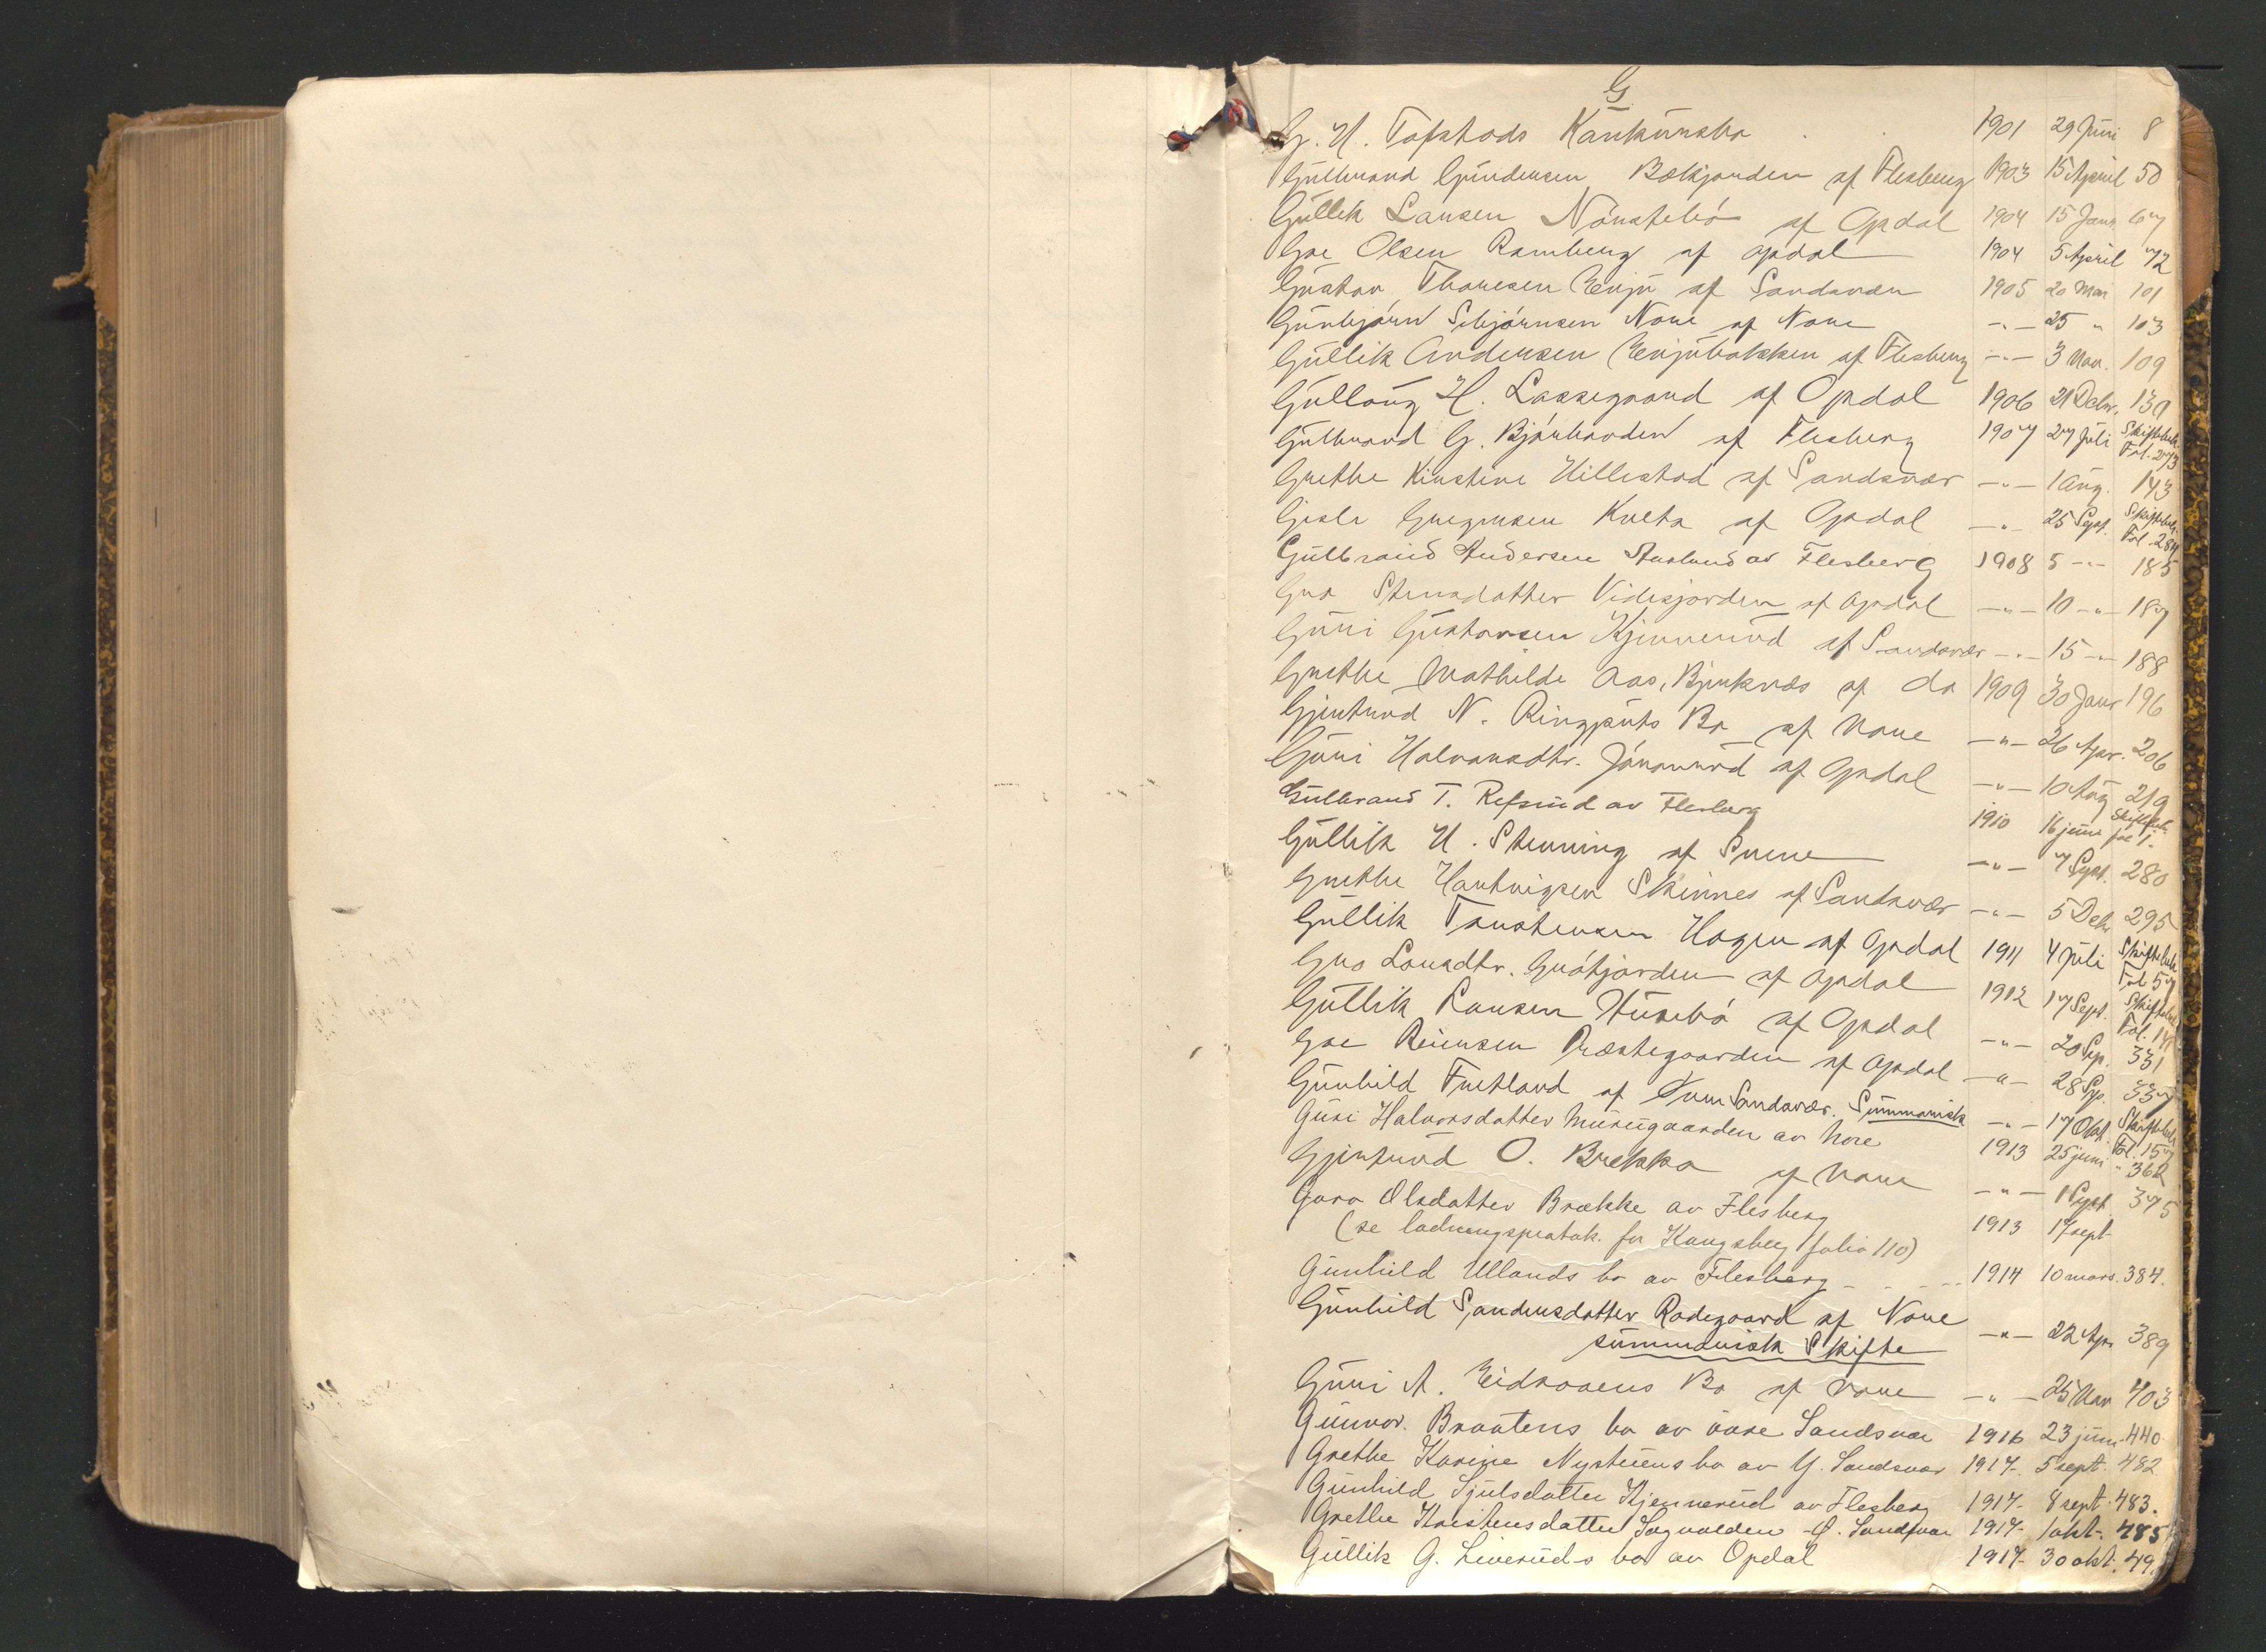 G.
G. H. Tofstads Konkursbo 1901 29 Juni 8
Gulbrand Gundersen Bækjorden af Flesberg 1903 15 April 50
Gullik Larsen Nørstebø af Opdal 1904 15 Janr 67
Goe Olsen Ramberg af Opdal 1904 5 April 72
Gustav Thoresen Eriju af Sandsvær 1905 20 Mai 101
Gunbjørn Sebjørnsen Nore af Nore -"- 25 " 103
Gullik Andersen af Flesberg -"- 3 Nov. 109
Gullaug H. Lassegaard af Opdal 1906 21 Debr. 139
Gulbrand G. af Flesberg 1907 27 Juli Skiftebeh. Fol. 273
Grethe Kirstine Hillestad af Sandsvær -"- 1 Aug. 143
Gisle Gregersen af Opdal -"- 25 Sept. Skiftebeh. Fol. 284
Gulbrand Andersen Aaslund av Flesberg 1908 5 -"- 185
Gro Steinsdatter Vidisjorden af Opdal -"- 10 -"- 187
Guri Gustavsen Kjennerud af Sandsvær -"- 15 -"- 188
Grethe Mathilde Aas, Bjerknæs af do 1909 30 Janr 196
Gjertrud N. Ringputs Bo af Nore -"- 26 Apr. 206
Guri Halvorsdtr. Jønnerud af Opdal -"- 10 Aug 219
Gulbrand T. Refsrud av Flesberg 1910 16 juni Skiftebeh. fol 1.
Gullik H. Skenning af Svene -"- 7 Sept. 280
Grethe Hartvigsen Skinnes af Sandsvær -"- 5 Debr 295
Gullik Torstensen Hagen af Opdal 1911 4 Juli Skiftebeh Fol 57
Gro Larsdtr. Grøtjorden af Opdal 1912 17 Sept. Skiftebeh Fol.
Gullik Larsen Husebø af Opdal -"- 20 Sep. 331
Goe Reiersen Præstegaarden af Opdal -"- 28 Sep. 337
Gunhild Fretland af Sandsvær. Summarisk -"- 17 Okt. Skiftebeh Fol. 157
Guri Halvorsdatter Murugaarden av Nore 1913 25 juni " 362
Gjertrud O. Brekke af Nore -"- 1 Sept. 375
Goro Olsdatter Brække av Flesberg 1913 17 sept
(se ladningsprotok. for Kongsberg folio 110)
Gunhild Ullands bo av Flesberg - - - - 1914 10 mars. 384.
Gunhild Sandersdatter Rodegaard af Nore
summarisk Skifte -"- 22 Apr 389
Guri A. Eidsaaens Bo af Nore -"- 25 Nov 403
Gunvor. Braatens bo av øvre Sandsvær 1916 23 juni. 440
Grethe Karine Nystuens bo av Y. Sandsvær 1917. 5 sept. 482
Gunhild Sjulsdatter Kjennerud av Flesberg 1917. 8 sept. 483.
Grethe Kristensdatter Sagvolden - Ø. Sandsvær 1917. 1 okt. 485
Gullik G. Liveruds bo av Opdal 1917. 30 okt. 49